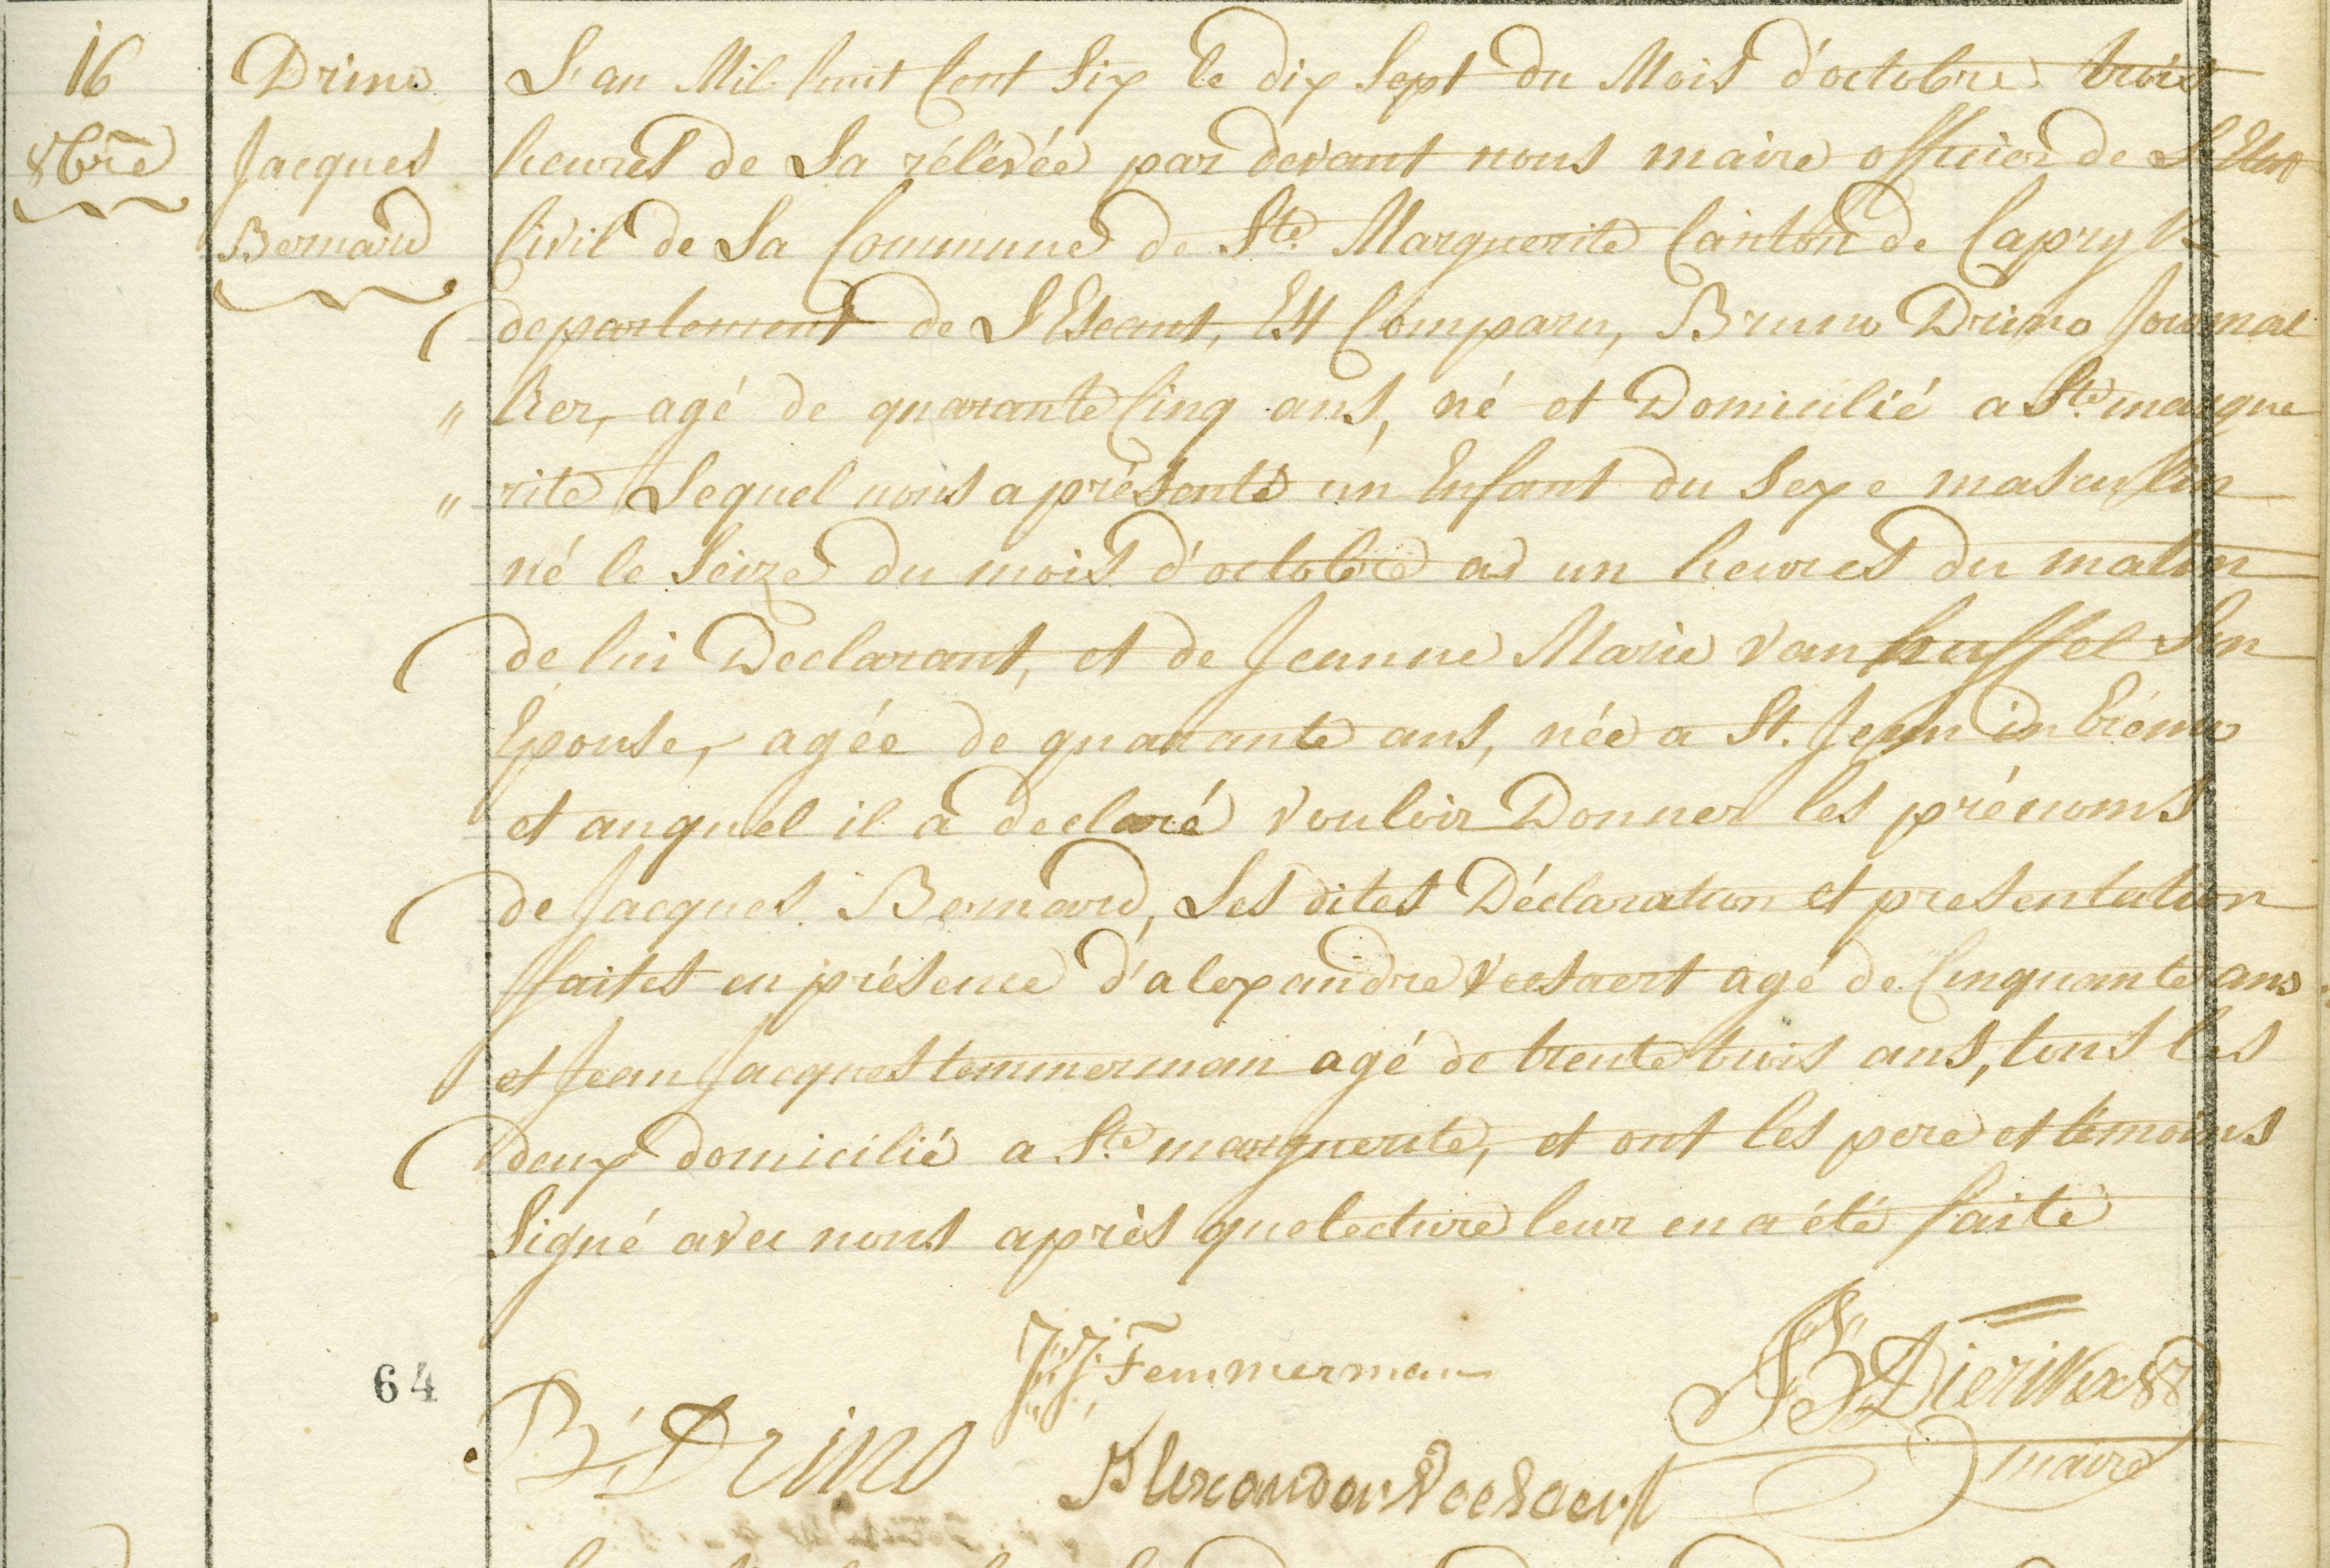 16
8bre
Drino
Jacques
Bernard
L'an Mil huit Cent Six le dix Sept du Mois d'octobre trois
heures de La rélévée par devant nous maire officier de L'Etat
Civil de La Commune de Ste. Marguerite Canton de Capryk
departement de L'Escaut, Est Comparu, Bruno Drino Journal
" lier, agé de quarante Cinq ans, né et Domicilié a Ste. margue
" rite Lequel nous a présenté un Enfant du Sexe masculin
né le Seize du mois d'octobre a un heures du matin
de lui Declarant, et de Jeanne Marie van huffel Son
Epouse, agée de quarante ans, née a St. Jean in Erémo
et auquel il a declaré vouloir Donner les prénoms
de Jacques Bernard, Les dites Déclaration et presentation
faites en présence d'alexandre Veesaert agé de Cinquante ans
et Jean Jacques temmerman agé de trente trois ans, tous les
deux domicilié a Ste marguerite, et ont les pere et témoins
Signé avec nous après que lecture leur en a été faite
64
B: Drino
J:J: Temmerman
Alexander Veesaert
Dierikx
maire